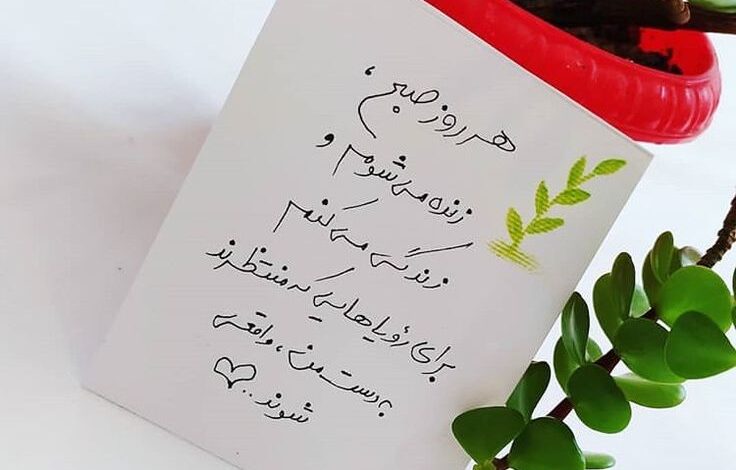 هر روز صبح،
زنده می شوم و
زندگی می کنم
برای رؤیاهایی که منتظرند
به دست من، واقعی
شوند..